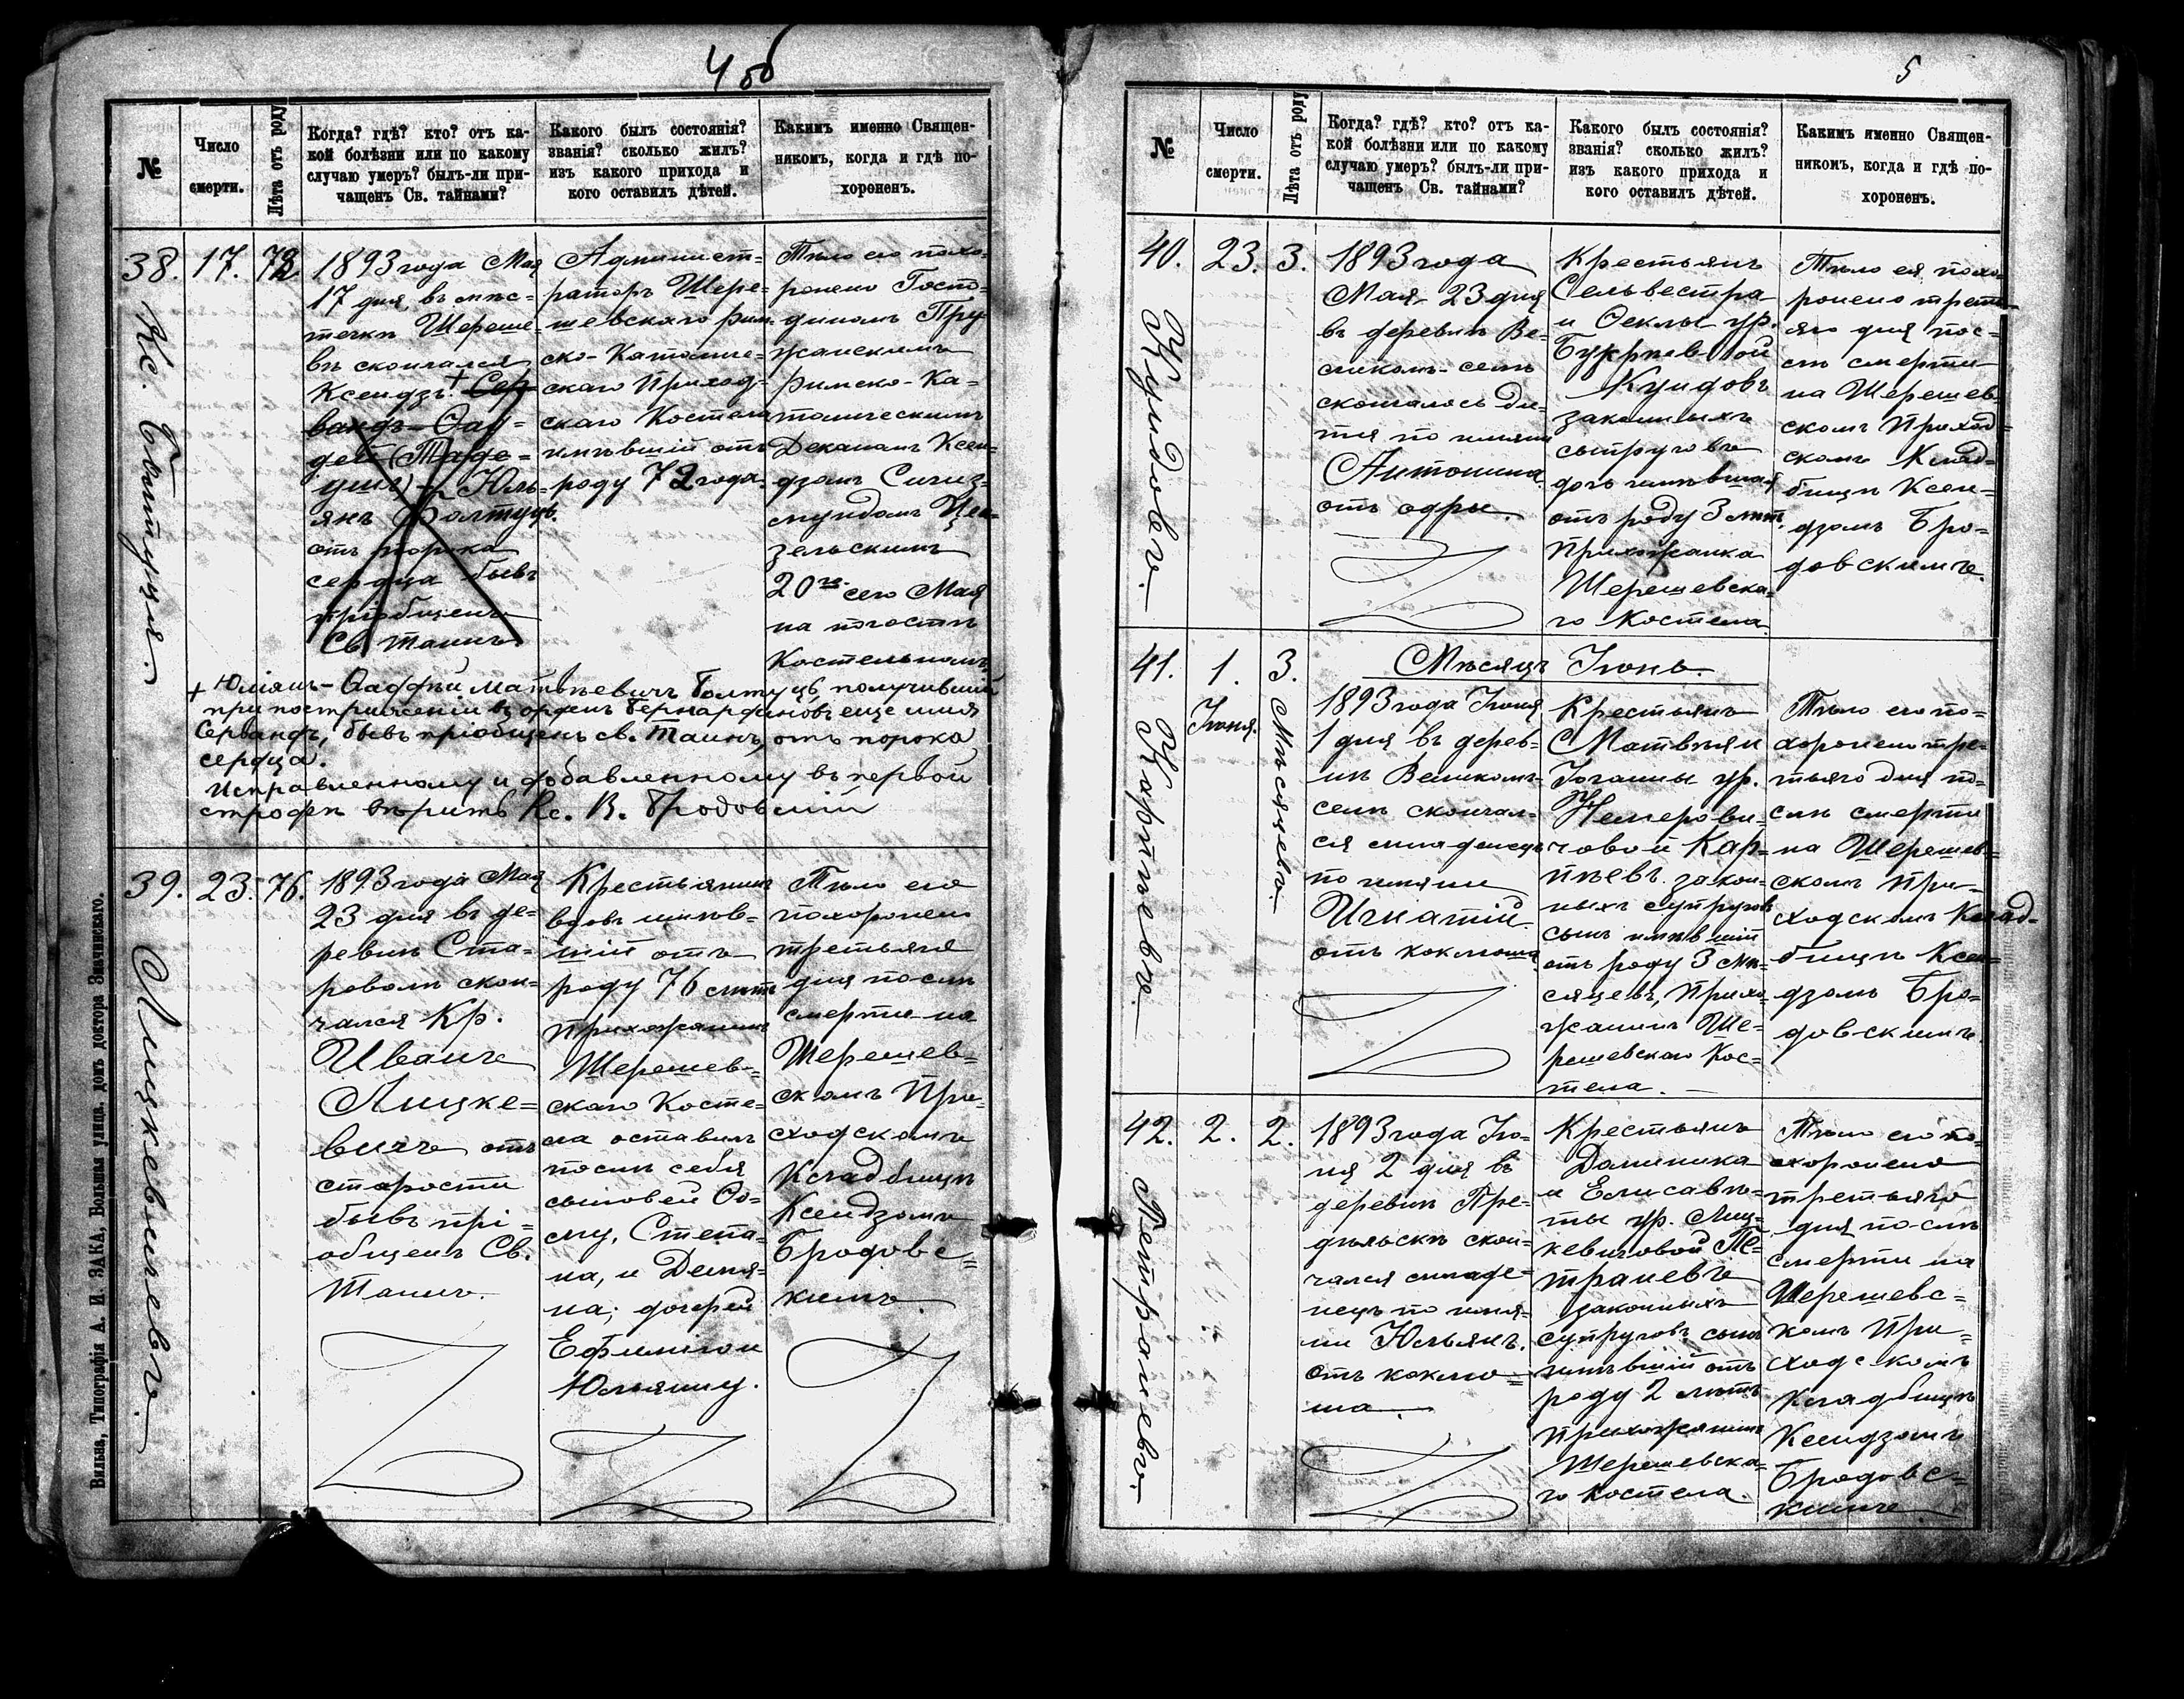 4 об
№
Число
смерти.
Лѣта отъ роду
Когда? гдѣ? кто? отъ ка-
кой болѣзни или по какому
случаю умеръ? былъ-ли при-
чащенъ Св. тайнами?
Какого былъ состоянія?
званія? сколько жилъ?
изъ какого прихода и
кого оставилъ дѣтей.
Какимъ именно Священ-
никомъ, когда и гдѣ по-
хороненъ.
38.
Кс. Болтуця.
17.
72
1893 года Мая
17 дня, въ мѣс-
течкѣ Шереше-
вѣ скончался
Ксендзъ + Сер-
вандъ-Фад-
дей (Таде-
ушъ) - Юль-
янъ Болтуць.
отъ порока
сердца бывъ
пріобщенъ
Св. Таинъ.
Админист=
раторъ Шере=
шевскаго рим-
ско-Католиче=
скаго приход-
скаго Костела
имѣвшій отъ
роду 72 года.
Тѣло его похо-
ронено Госпо-
диномъ Пру-
жанскимъ
Римско-Ка-
толическимъ
Деканомъ Ксен-
дзомъ Сигиз-
мундомъ
20го сего Мая
на погостѣ
Костельномъ
+ Юліанъ-Фаддѣй Матвѣевичъ Болтуць, получившій
при постриженіи въ орденъ Бернардиновъ еще имя
Сервандъ, бывъ пріобщенъ св. Таинъ, отъ порока
сердца.
Исправленному и добавленному въ первой
строфѣ вѣрить Кс. В. Бродовскій
39.
Лицкевичевъ.
23.
76.
1893 года Мая
23 дня въ де-
ревнѣ Ста-
роволѣ скон-
чался Кр.
Иванъ
Лицке=
вичъ отъ
старости
бывъ прі=
общенъ Св.
Таинъ.
Крестьянинъ
вдовъ имѣв-
шій отъ
роду 76 лѣтъ
прихожанинъ
Шерешев-
скаго Косте=
ла оставилъ
послѣ себя
сыновей Фо-
му, Степа-
на, и Демья-
на; дочерей
Ефимію и
Юльяну.
Тѣло его
похоронено
третьяго
дня послѣ
смерти на
Шерешев=
скомъ При-
ходскомъ
Кладбищѣ
Ксендзомъ
Бродовс=
кимъ.
Вильна, Типографія А. И. ЗАКА, Большая улица. домъ доктора Значинскаго.
5
№
Число
смерти.
Лѣта отъ роду
Когда? гдѣ? кто? отъ ка-
кой болѣзни или по какому
случаю умеръ? былъ-ли при-
чащенъ Св. тайнами?
Какого былъ состоянія?
званія? сколько жилъ?
изъ какого прихода и
кого оставилъ дѣтей.
Какимъ именно Священ-
никомъ, когда и гдѣ по-
хороненъ.
40.
23.
3.
1893 года
Мая 23 дня
въ деревнѣ Ве-
ликомъ-селѣ
скончалось ди-
тя по имени
Антонина
отъ одры.
Крестьянъ
Сельвестра
и Феклы ур.
закоенныхъ
супруговъ
дочь имѣвшая
отъ роду 3 лѣт.
прихожанка
Шерешевска-
го Костела.
Тѣло ея похо-
ронено треть-
яго дня пос-
лѣ смерти
на Шерешев-
скомъ Приход-
скомъ Клад-
бищѣ Ксен-
дзомъ Бро-
довскимъ.
41.
Карпѣевъ.
1.
Іюня.
3.
Мѣсяцевъ.
Мѣсяцъ Іюнь.
1893 года Іюня
1 дня въ дерев-
нѣ Великомъ-
селѣ скончал-
ся младенецъ
по имени
Игнатій
отъ коклюша
Крестьянъ
Матвѣя и
Іоганны ур.
Немерови-
човой Кар-
пѣевъ закон-
ныхъ супруговъ
сынъ имѣвшій
отъ роду 3 мѣ-
сяцевъ, прихо-
жанинъ Ше-
решевскаго Кос-
тела.
Тѣло его по-
хоронено тре-
тьяго дня по-
слѣ смерти
на Шерешев=
скомъ При-
ходскомъ Клад-
бищѣ Ксен-
дзомъ Бро-
довскимъ.
42.
Петраневъ.
2.
2.
1893 года Ію-
ня 2 дня въ
деревнѣ Пре-
дѣльскѣ скон-
чался младе-
нецъ по име-
ни Юльянъ.
отъ коклю=
ша.
Крестьянъ
Доминика
и Елисаве-
ты ур. Лиц-
кевичовой Пе-
траневъ
законныхъ
супруговъ сынъ
имѣвшій отъ
роду 2 лѣтъ
прихожанинъ
Шерешевска-
го костела.
Тѣло его по-
хоронено
третьяго
дня послѣ
смерти на
Шерешевс=
комъ При=
ходскомъ
Кладбищѣ
Ксендзомъ
Бродовс-
кимъ.